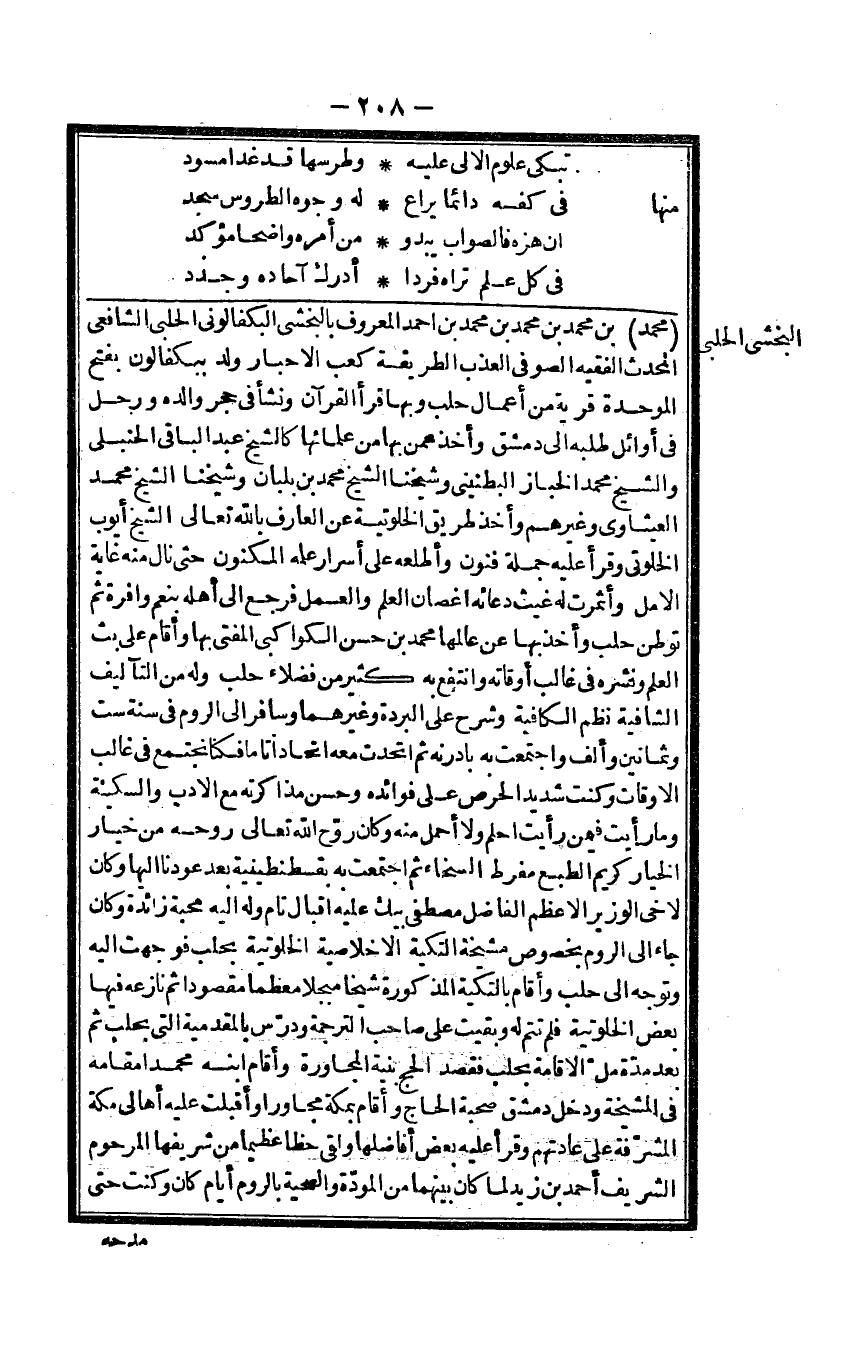 — ٢٠٨ —
تبكى علوم الالى عليه * وطرسها قد غدا مسود
منها فى كفه دائما يراع * له وجوه الطروس سجد
ان هزه فالصواب يبدو * من أمره واضحا مؤكد
فى كل علم تراه فردا * أدرك آحاده وجدد
البخشى الحلبى
(محمد) بن محمد بن محمد بن محمد بن احمد المعروف بالبخشى البكفالونى الحلبى الشافعى
المحدث الفقيه الصوفى العذب الطريقة كعب الاحبار ولد ببكفالون بفتح
الموحدة قرية من أعمال حلب وبها قرأ القرآن ونشأ فى حجر والده ورحل
فى أوائل طلبه الى دمشق وأخذ عمن بها من علمائها كالشيخ عبد الباقى الحنبلى
والشيخ محمد الخباز البطنينى وشيخنا الشيخ محمد بن بلبان وشيخنا الشيخ محمد
العيثاوى وغيرهم وأخذ طريق الخلوتية عن العارف بالله تعالى الشيخ أيوب
الخلوتى وقرأ عليه جملة فنون وأطلعه على أسرار علمه المكنون حتى نال منه غاية
الامل وأثمرت له غيث دعائه اغصان العلم والعمل فرجع الى أهله بنعم وافرة ثم
توطن حلب وأخذ بها عن عالمها محمد بن حسن الكواكبى المفتى بها وأقام على بث
العلم ونشره فى غالب أوقاته وانتفع به كثير من فضلاء حلب وله من التآليف
الشافية نظم الكافية وشرح على البردة وغيرهما وسافر الى الروم فى سنة ست
وثمانين وألف واجتمعت به بادرنه ثم اتحدت معه اتحادا تاما فكنا نجتمع فى غالب
الاوقات وكنت شديد الحرص على فوائده وحسن مذاكرته مع الادب والسكينة
وما رأيت فيمن رأيت احلم ولا أحمل منه وكان روّح الله تعالى روحه من خيار
الخيار كريم الطبع مفرط السخاء ثم اجتمعت به بقسطنطينية بعد عودنا اليها وكان
لاخى الوزير الاعظم الفاضل مصطفى بيك عليه اقبال تام وله اليه محبة زائدة وكان
جاء الى الروم بخصوص مشيخة التكية الاخلاصية الخلوتية بحلب فوجهت اليه
وتوجه الى حلب وأقام بالتكية المذكورة شيخا مبجلا معظما مقصودا ثم نازعه فيها
بعض الخلوتية فلم تتم له وبقيت على صاحب الترجمة ودرّس بالمقدمية التى بحلب ثم
بعد مدّة ملّ الاقامة بحلب فقصد الحج بنية المجاورة وأقام ابنه محمدا مقامه
فى المشيخة ودخل دمشق صحبة الحاج وأقام بمكة مجاورا وأقبلت عليه أهالى مكة
المشرّفة على عادتهم وقرأ عليه بعض أفاضلها ولقى حظا عظيما من شريفها المرحوم
الشريف أحمد بن زيد لما كان بينهما من المودّة والصحبة بالروم أيام كان وكنت حتى
مدحه